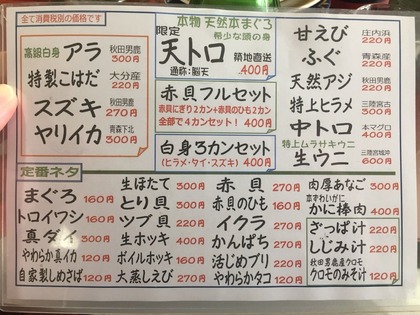 全て消費税別の価格です
高級白身 アラ 秋田男鹿 300円
特製こはだ 大分産 220円
スズキ 秋田男鹿 270円
ヤリイカ 青森下北 300円
本物 天然本まぐろ
希少な頭の身
限定 天トロ 築地直送
通称:脳天 400円
赤貝フルセット
赤貝にぎり2カン+赤貝のひも2カン
全部で4カンセット! 400円
白身3カンセット
(ヒラメ・タイ・スズキ) 400円
甘えび 庄内浜 220円
ふぐ 青森産 220円
天然アジ 秋田男鹿 220円
特上ヒラメ 三陸宮古 300円
中トロ 本マグロ 400円
特上ムラサキウニ
生ウニ 三陸宮城沖 600円
定番ネタ
まぐろ 160円
トロイワシ 160円
真ダイ 300円
やわらか真イカ 120円
自家製しめさば 120円
生ほたて 300円
とり貝 300円
ツブ貝 220円
生ホッキ 400円
ボイルホッキ 160円
大蒸しえび 270円
赤貝 270円
赤貝のひも 160円
イクラ 270円
かんぱち 270円
活じめブリ 220円
やわらかタコ 120円
肉厚あなご 300円
本ずわいがに
かに棒肉 400円
ざっぱ汁 220円
しじみ汁 220円
秋田男鹿産クロモ
クロモのみそ汁 120円